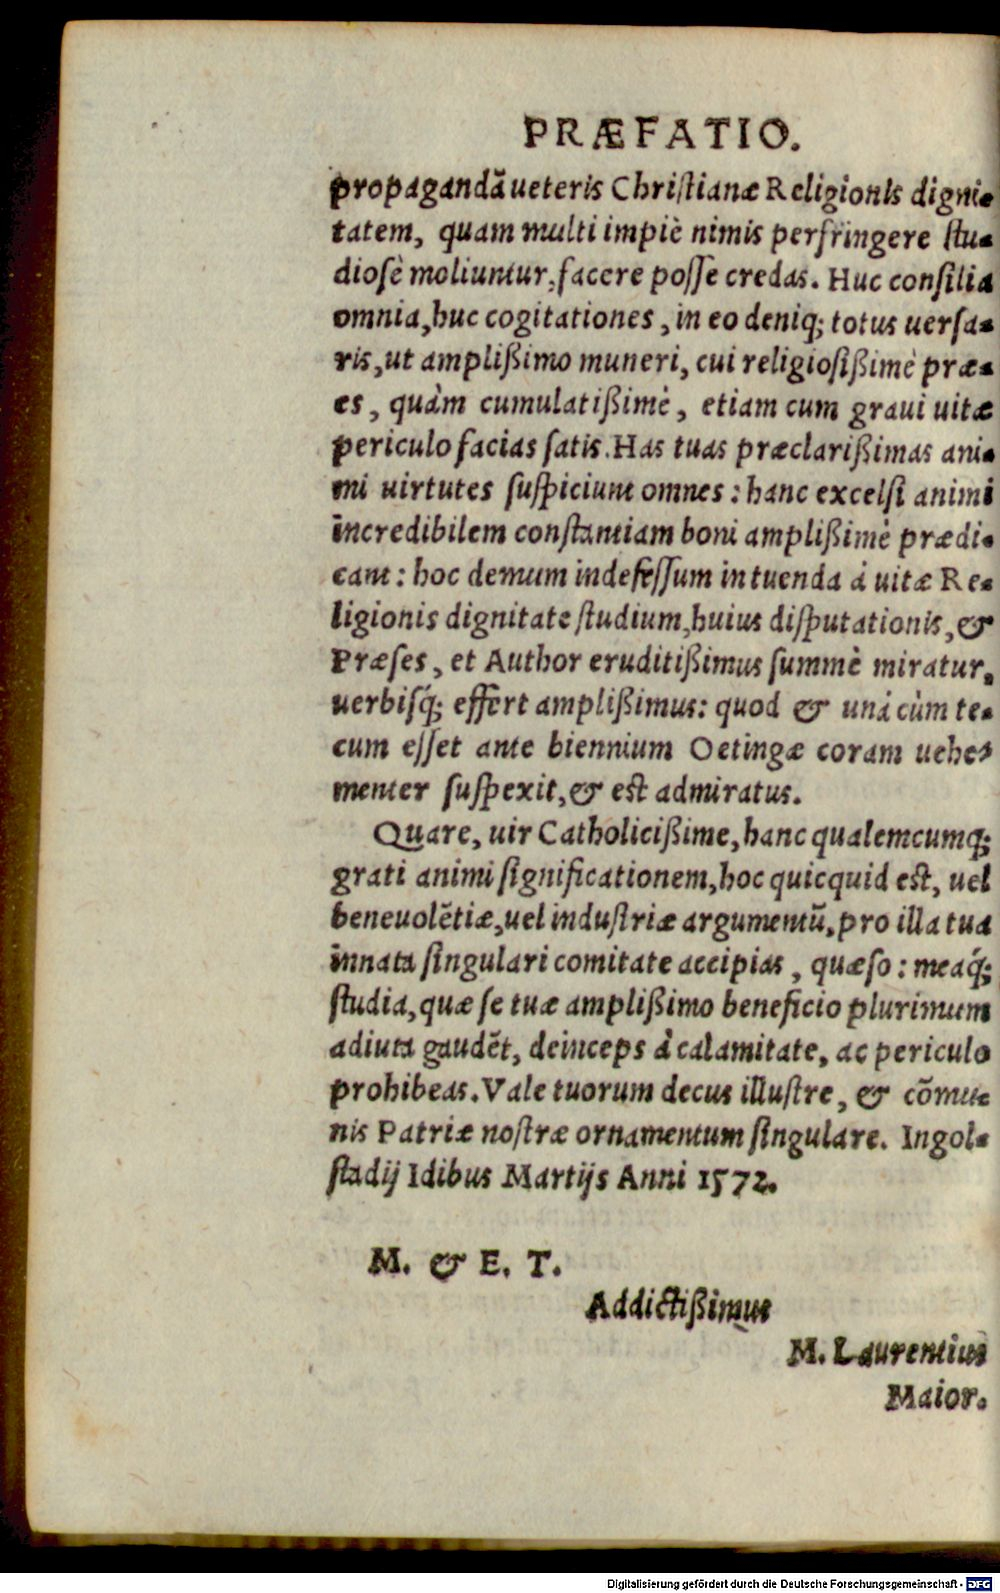 PRÆFATIO.
propagandā ueteris Chriſtianæ Religionis digni-
tatem, quam multi impiè nimis perfringere ſtu-
dioſè moliuntur, facere poſſe credas. Huc conſilia
omnia, huc cogitationes, in eo deniq; totus uerſa-
ris, ut amplißimo muneri, cui religioſißimè præ-
es, quàm cumulatißimè, etiam cum graui uitæ
periculo facias ſatis. Has tuas præclarißimas ani-
mi uirtutes ſuſpiciunt omnes: hanc excelſi animi
incredibilem conſtantiam boni amplißimè prædi-
cant: hoc demum indefeſſum in tuenda à uitæ Re-
ligionis dignitate ſtudium, huius diſputationis, &
Præſes, et Author eruditißimus ſummè miratur,
uerbiſq́; effert amplißimus: quod & unà cùm te-
cum eſſet ante biennium Oetingæ coram uehe-
menter ſuſpexit, & est admiratus.
Quare, uir Catholicißime, hanc qualemcumq;
grati animi ſignificationem, hoc quicquid est, uel
beneuolētiæ, uel induſtriæ argumentū, pro illa tua
innata ſingulari comitate accipias, quæſo: meaq́;
ſtudia, quæ ſe tuæ amplißimo beneficio plurimum
adiuta gaudēt, deinceps à calamitate, ac periculo
prohibeas. Vale tuorum decus illuſtre, & cōmu-
nis Patriæ noſtræ ornamentum ſingulare. Ingol-
ſtadij Idibus Martijs Anni 1572.
M. & E. T.
Addictißimus
M. Laurentius
Maior.
Digitalisierung gefördert durch die Deutsche Forschungsgemeinschaft - DFG